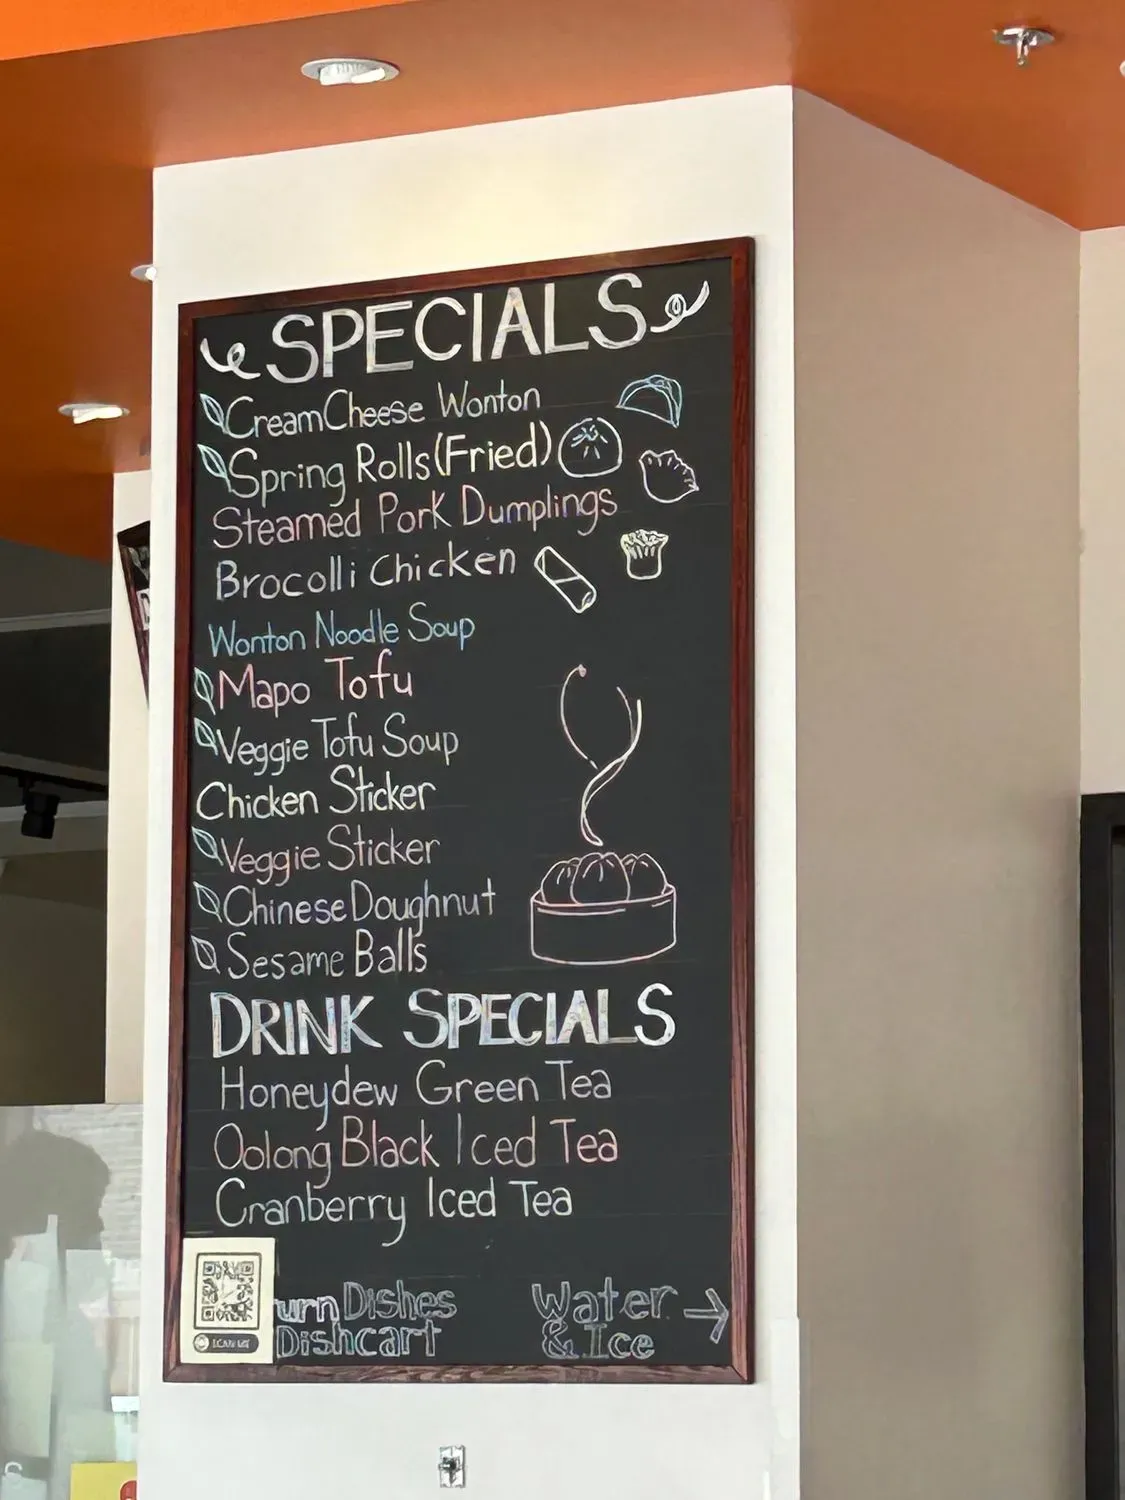 SPECIALS
CreamCheese Wonton
Spring Rolls(Fried)
Steamed Pork Dumplings
Brocolli Chicken
Wonton Noodle Soup
Mapo Tofu
Veggie Tofu Soup
Chicken Sticker
Veggie Sticker
Chinese Doughnut
Sesame Balls
DRINK SPECIALS
Honeydew Green Tea
Oolong Black Iced Tea
Cranberry Iced Tea
urn Dishes
Dishcart
Water →
& Ice
SCAN ME